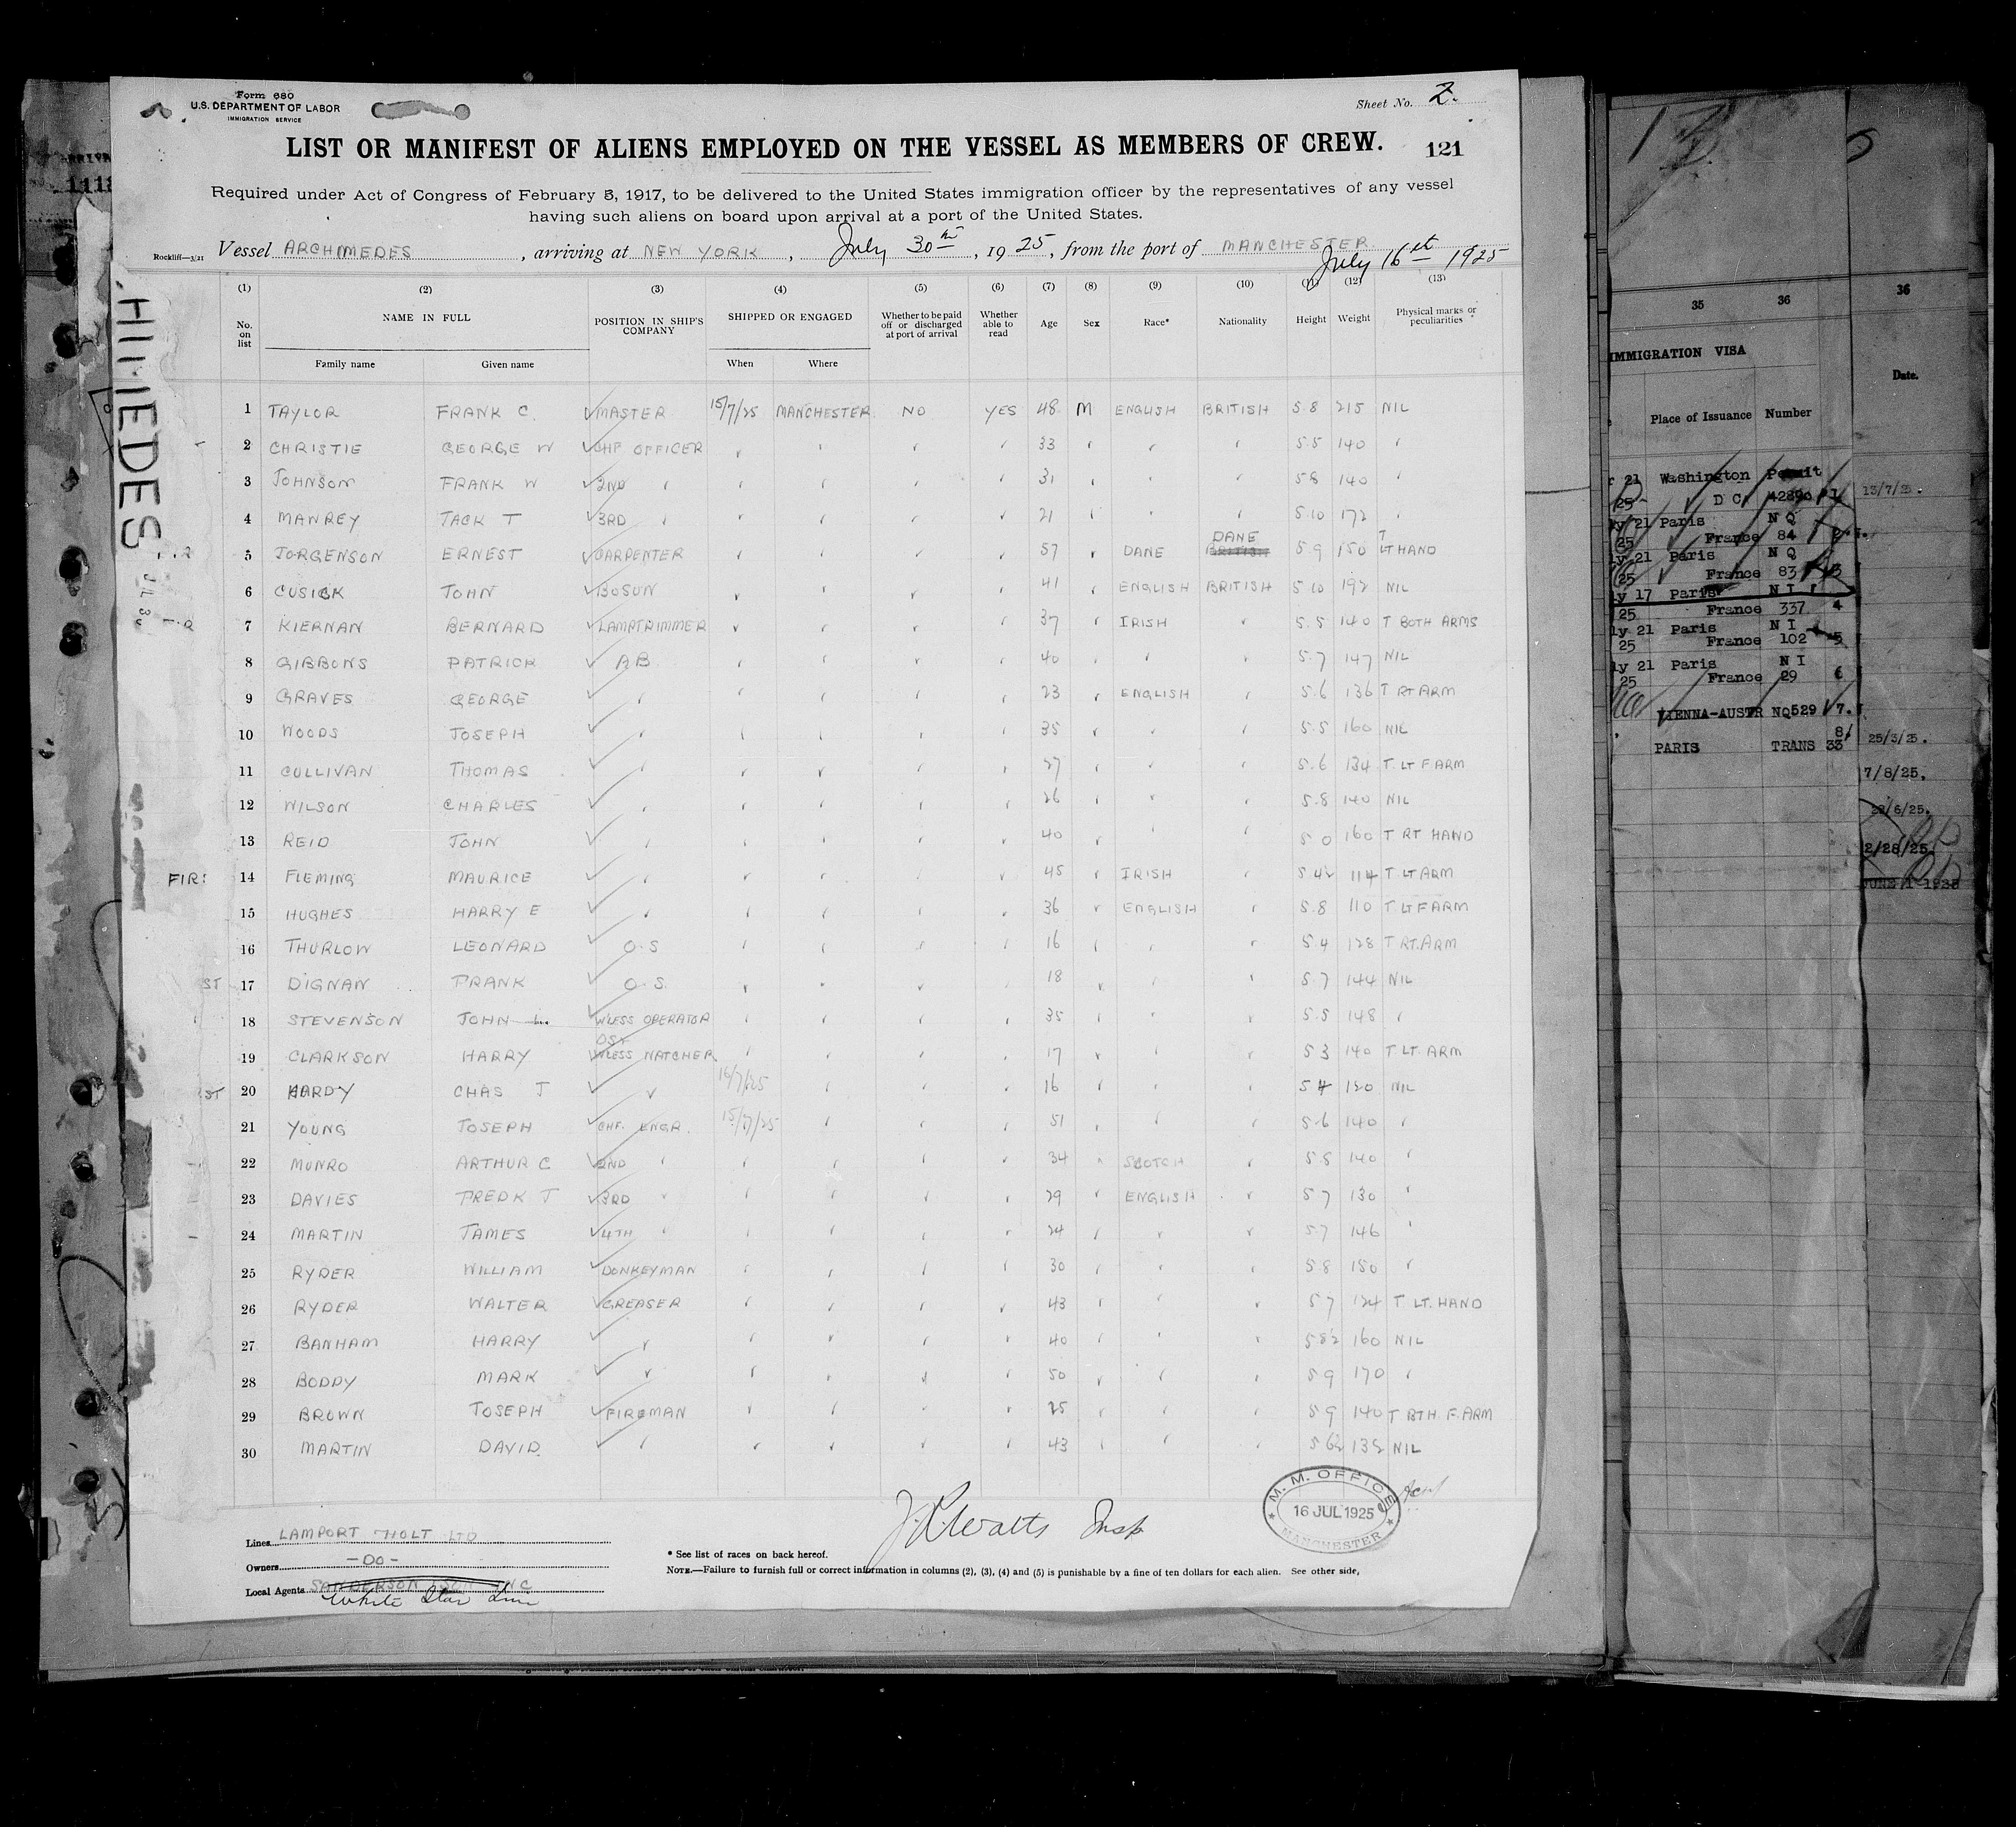 Form 680
U.S. DEPARTMENT OF LABOR
IMMIGRATION SERVICE
Sheet No. 2.
LIST OR MANIFEST OF ALIENS EMPLOYED ON THE VESSEL AS MEMBERS OF CREW. 121
Required under Act of Congress of February 5, 1917, to be delivered to the United States immigration officer by the representatives of any vessel
having such aliens on board upon arrival at a port of the United States.
Rockliff—3/21 Vessel ARCHIMEDES, arriving at NEW YORK, July 30th, 1925, from the port of MANCHESTER
July 16 1925
(1) (2) (3) (4) (5) (6) (7) (8) (9) (10) (11) (12) (13)
No. on list NAME IN FULL POSITION IN SHIP'S COMPANY SHIPPED OR ENGAGED Whether to be paid off or discharged at port of arrival Whether able to read Age Sex Race* Nationality Height Weight Physical marks or peculiarities
Family name Given name When Where
1 TAYLOR FRANK C. ✓MASTER 15/7/25 MANCHESTER NO YES 48 M ENGLISH BRITISH 5.8 215 NIL
2 CHRISTIE GEORGE W ✓CHF OFFICER 33 5.5 140
3 JOHNSON FRANK W ✓2ND 31 5 8 140
4 MAWREY JACK T ✓3RD 21 5.10 172
5 JORGENSON ERNEST ✓CARPENTER 57 DANE DANE 5.9 150 T LT HAND
6 CUSICK JOHN ✓BOSUN 41 ENGLISH BRITISH 5 10 192 NIL
7 KIERNAN BERNARD ✓LAMPTRIMMER 37 IRISH 5.5 140 T BOTH ARMS
8 GIBBONS PATRICK ✓ AB 40 5.7 147 NIL
9 GRAVES GEORGE ✓ 23 ENGLISH 5.6 136 T RT ARM
10 WOODS JOSEPH ✓ 35 5.5 160 NIL
11 CULLIVAN THOMAS ✓ 27 5.6 134 T. LT F ARM
12 WILSON CHARLES ✓ 26 5.8 140 NIL
13 REID JOHN ✓ 40 5 0 160 T RT HAND
14 FLEMING MAURICE ✓ 45 IRISH 5 4½ 114 T LT ARM
15 HUGHES HARRY E ✓ 36 ENGLISH 5.8 110 T LT F ARM
16 THURLOW LEONARD ✓ O.S 16 5.4 128 T RT. ARM
17 DIGNAN FRANK ✓ O.S. 18 5.7 144 NIL
18 STEVENSON JOHN ✓W'LESS OPERATOR 35 5.5 148
19 CLARKSON HARRY ✓W'LESS WATCHER 17 5 3 140 T LT. ARM
20 HARDY CHAS J ✓ 16/7/25 16 5 4 120 NIL
21 YOUNG JOSEPH ✓CHF. ENGR. 15/7/25 51 5.6 140
22 MUNRO ARTHUR C ✓2ND 34 SCOTCH 5.8 140
23 DAVIES FREDK J ✓3RD 29 ENGLISH 5 7 130
24 MARTIN JAMES ✓4TH 24 5.7 146
25 RYDER WILLIAM ✓DONKEYMAN 30 5.8 150
26 RYDER WALTER ✓GREASER 43 5 7 124 T LT. HAND
27 BANHAM HARRY ✓ 40 5 8½ 160 NIL
28 BODDY MARK ✓ 50 5 9 170
29 BROWN JOSEPH ✓FIREMAN 25 5 9 140 T BTH. F. ARM
30 MARTIN DAVID ✓ 43 5 6½ 132 NIL
J. Watts Insp
M. M. OFFICE
16 JUL 1925
MANCHESTER
Lines LAMPORT & HOLT LTD
Owners -DO-
Local Agents SANDERSON & SON INC
White Star Line
* See list of races on back hereof.
NOTE.—Failure to furnish full or correct information in columns (2), (3), (4) and (5) is punishable by a fine of ten dollars for each alien. See other side,
FIR
ST
ST
35 36 36
IMMIGRATION VISA
Date.
Place of Issuance Number
21 Washington Permit
25 D C 42890 1 13/7/25.
ly 21 Paris N Q
25 France 84 2
ly 21 Paris N Q
25 France 83 3
ly 17 Paris N I
25 France 337 4
ly 21 Paris N I
25 France 102 5
ly 21 Paris N I
25 France 29 6
VIENNA-AUSTR NQ529 7.
PARIS TRANS 33 8/ 25/3/25.
7/8/25.
22/6/25.
2/28/25.
JUNE 1 1925